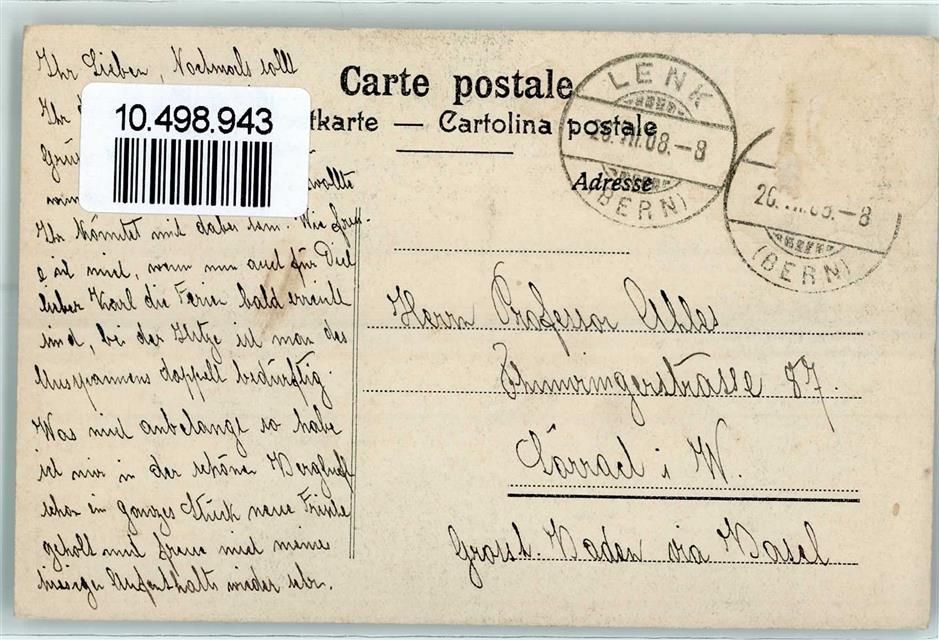 Ihr Lieben, Nochmals sollt
Ihr
10.498.943
Grüs
wollte
Ihr könntet mit dabei sein. Wie freu-
e ich mich, wenn nun auch für Dich
lieber Karl die Ferien bald erreicht
sind, bei der Hitze ist man des
Ausspannens doppelt bedürftig.
Was mich anbelangt so habe
ich mir in der schönen Bergluft
schon ein ganzes Stück neue Frische
geholt und freue mich meines
hiesigen Aufenthalts wieder sehr.
Carte postale
tkarte — Cartolina postale
Adresse
LENK
26. VII. 08. – 8
(BERN)
26. VII. 08. – 8
(BERN)
Herrn Professor Ahles
Thumringerstrasse 87.
Lörrach i W.
Grossh. Baden via Basel